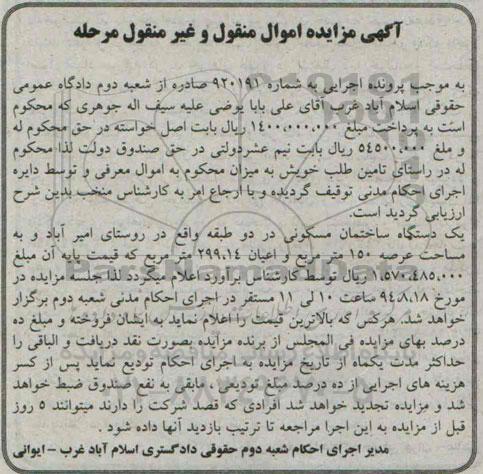 آگهی مزایده اموال منقول و غیر منقول مرحله
به موجب پرونده اجرایی به شماره ۹۲۰۱۹۱ صادره از شعبه دوم دادگاه عمومی
حقوقی اسلام آباد غرب آقای علی بابا یوضی علیه سیف اله جوهری که محکوم
است به پرداخت مبلغ ۱۴۰۰،۰۰۰،۰۰۰ ریال بابت اصل خواسته در حق محکوم له
و ملغ ۵۴۵۰۰،۰۰۰ ریال بابت نیم عشردولتی در حق صندوق دولت لذا محکوم
له در راستای تامین طلب خویش به میزان محکوم به اموال معرفی و توسط دایره
اجرای احکام مدنی توقیف گردیده و با ارجاع امر به کارشناس منخب بدین شرح
ارزیابی گردید است.
یک دستگاه ساختمان مسکونی در دو طبقه واقع در روستای امیر آباد و به
مساحت عرصه ۱۵۰ متر مربع و اعیان ۲۹۹،۱۴ متر مربع که قیمت پایه آن مبلغ
۱،۵۷۰،۴۸۵،۰۰۰ ریال توسط کارشناس برآورد اعلام میگردد لذا جلسه مزایده در
مورخ ۹۴،۸،۱۸ ساعت ۱۰ لی ۱۱ مستقر در اجرای احکام مدنی شعبه دوم برگزار
خواهد شد. هرکس که بالاترین قیمت را اعلام نماید به ایشان فروخته و مبلغ ده
درصد بهای مزایده فی المجلس از برنده مزایده بصورت نقد دریافت و الباقی را
حداکثر مدت یکماه از تاریخ مزایده به اجرای احکام تودیع نماید پس از کسر
هزینه های اجرایی از ده درصد مبلغ تودیعی ، مابقی به نفع صندوق ضبط خواهد
شد و مزایده تجدید خواهد شد افرادی که قصد شرکت را دارند میتوانند ۵ روز
قبل از مزایده به این اجرا مراجعه تا ترتیب بازدید آنها داده شود .
مدیر اجرای احکام شعبه دوم حقوقی دادگستری اسلام آباد غرب - ایوانی